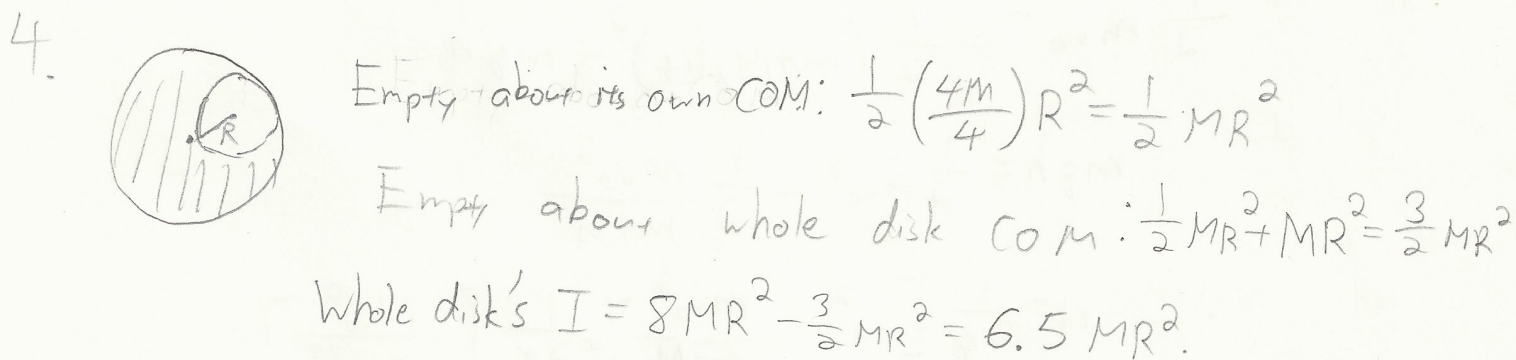 4.
R
Empty about its own COM: 1/2 (4M/4) R² = 1/2 MR²
Empty about whole disk COM: 1/2 MR² + MR² = 3/2 MR²
Whole disk's I = 8MR² - 3/2 MR² = 6.5 MR².